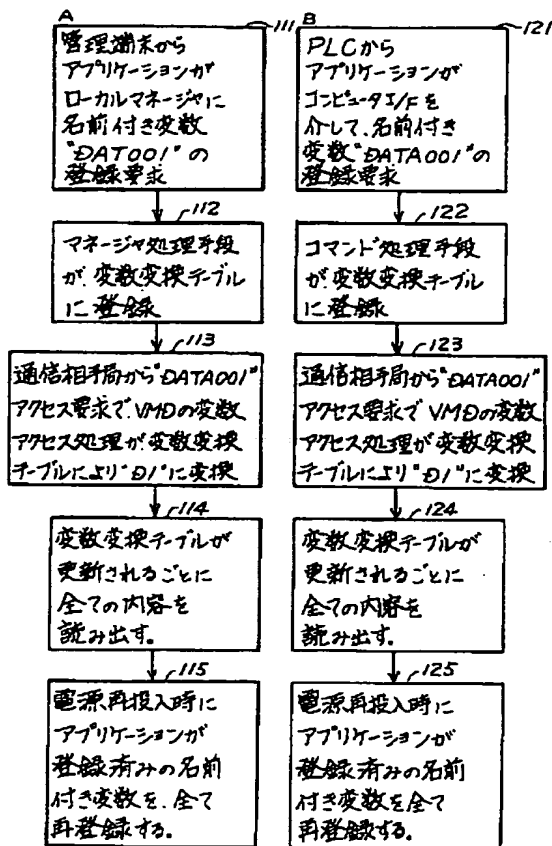 A
111
管理端末から
アプリケーションが
ローカルマネージャに
名前付き変数
"DAT001"の
登録要求
112
マネージャ処理手段
が、変数変換テーブル
に登録
113
通信相手局から"DATA001"
アクセス要求で、VMDの変数
アクセス処理が、変数変換
テーブルにより"D1"に変換
114
変数変換テーブルが
更新されるごとに
全ての内容を
読み出す。
115
電源再投入時に
アプリケーションが
登録済みの名前
付き変数を、全て
再登録する。
B
121
PLCから
アプリケーションが
コンピュータI/Fを
介して、名前付き
変数"DATA001"の
登録要求
122
コマンド処理手段
が、変数変換テーブル
に登録
123
通信相手局から"DATA001"
アクセス要求で VMDの変数
アクセス処理が、変数変換
テーブルにより"D1"に変換
124
変数変換テーブルが
更新されるごとに
全ての内容を
読み出す。
125
電源再投入時に
アプリケーションが
登録済みの名前
付き変数を全て
再登録する。